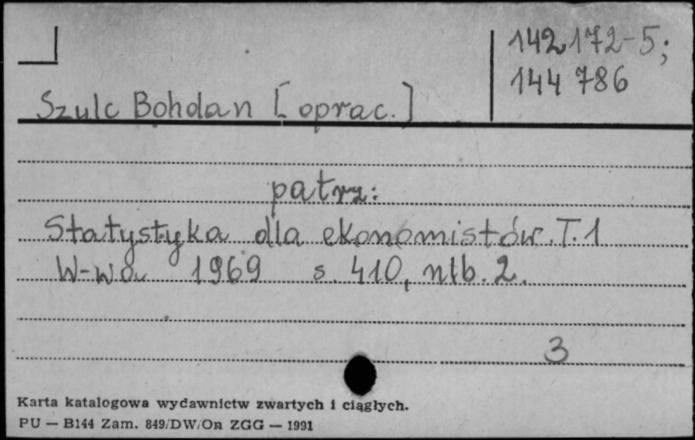 142172-5;
144 786
Szulc Bohdan [oprac.]
patrz:
Statystyka dla ekonomistów. T. 1
W-wa 1969 s. 410, nlb. 2.
3
Karta katalogowa wydawnictw zwartych i ciągłych.
PU — B144 Zam. 849/DW/On ZGG — 1991